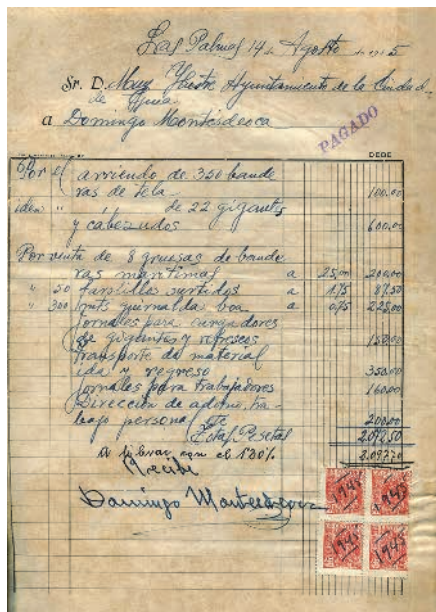 Las Palmas 14 de Agosto de 1945
Sr. D. Muy Ilustre Ayuntamiento de la Ciudad
de Guia
a Domingo Montesdeoca
PAGADO
DEBE
Por el arriendo de 350 bande
ras de tela 100,00
idem " de 22 gigantes
y cabezudos 600,00
Por venta de 8 gruesas de bande
ras maritimas a 25,00 200,00
" 50 farolillos surtidos a 1,75 87,50
" 300 mts guirnaldas boa a 0,75 225,00
Jornales para cargadores
de gigantes y refrescos 150,00
Transporte de material
ida y regreso 350,00
Jornales para trabajadores 160,00
Dirección de adorno, tra-
bajo personal 200,00
Total Pesetas 2.072,50
A librar con el 1'30%
2.097,70
Recibi
Domingo Montesdeoca
1945 1945
1945 1945